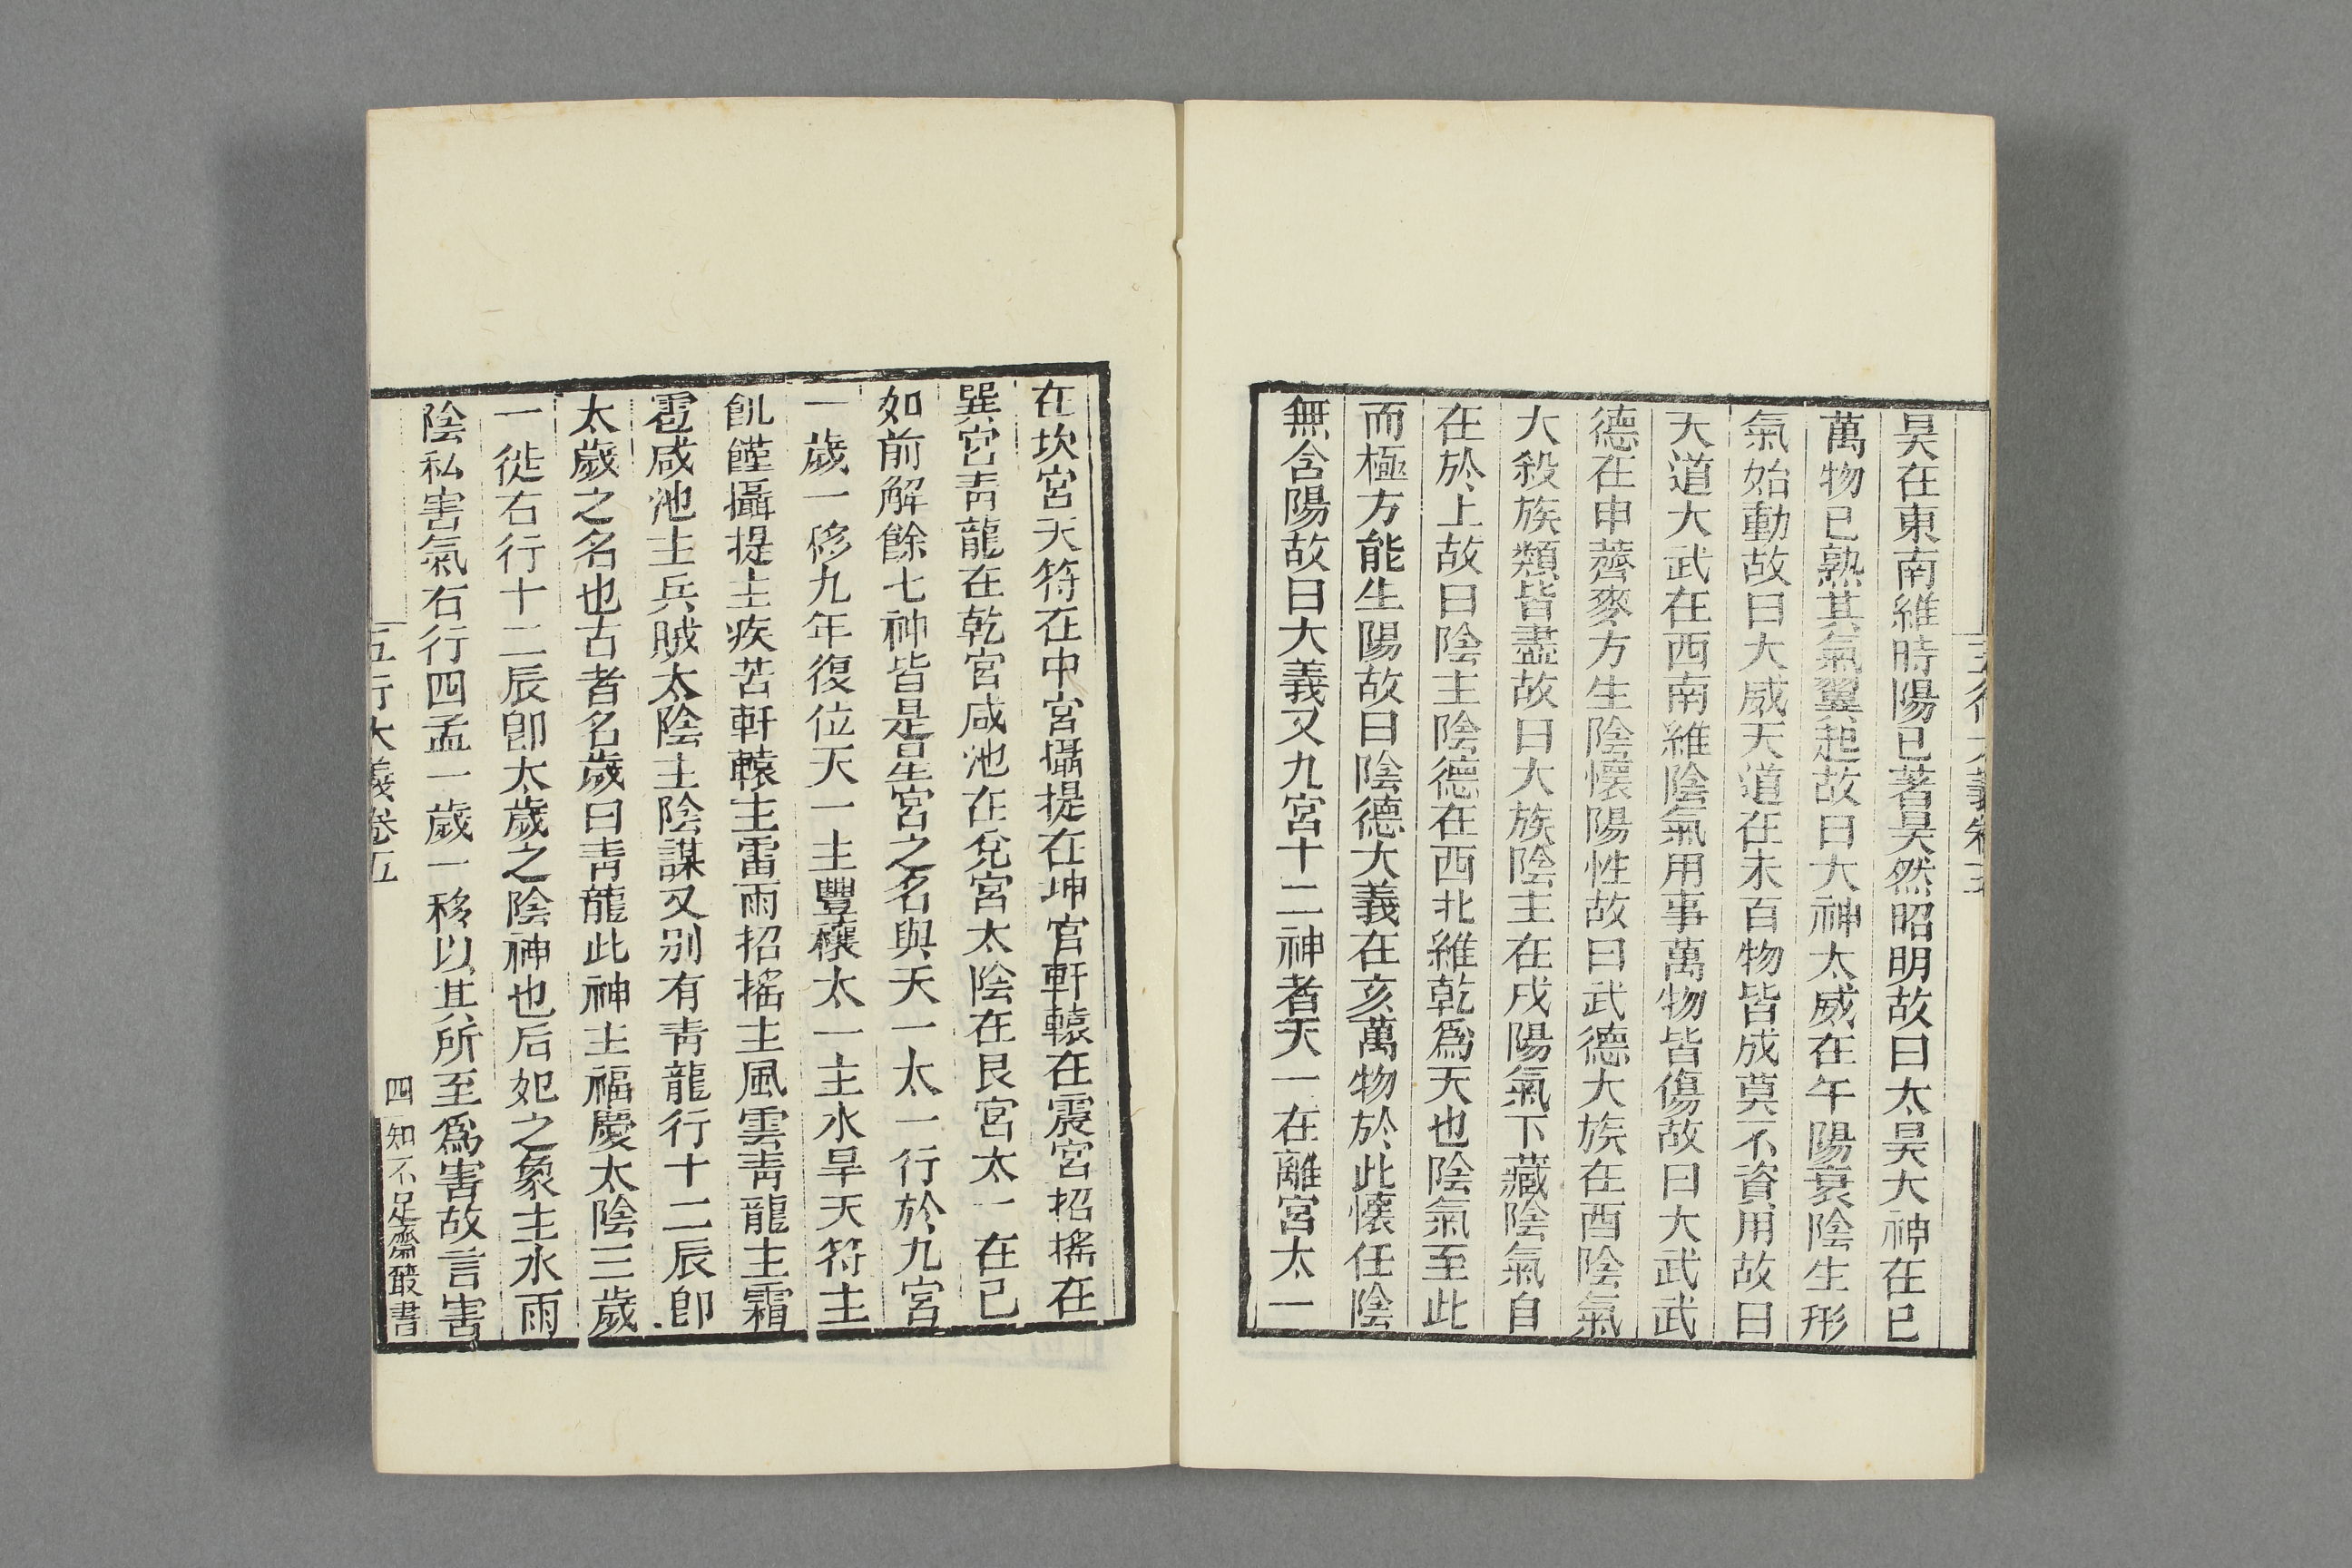 昊在東南維時陽已著昊然昭明故曰太昊大神在巳
萬物已熟其氣翼起故曰大神太威在午陽衰陰生形
氣始動故曰大威天道在未百物皆成莫不資用故曰
天道大武在西南維陰氣用事萬物皆傷故曰大武武
德在申薺麥方生陰懷陽性故曰武德大族在酉陰氣
大殺族類皆盡故曰大族陰主在戌陽氣下藏陰氣自
在於上故曰陰主陰德在西北維乾爲天也陰氣至此
而極方能生陽故曰陰德大義在亥萬物於此懷任陰
無含陽故曰大義又九宮十二神者天一在離宮太一
在坎宮天符在中宮攝提在坤官軒轅在震宮招搖在
巽宮青龍在乾宮咸池在兌宮太陰在艮宮太一在已
如前解餘七神皆是星宮之名與天一太一行於九宮
一歲一移九年復位天一主豐穰太一主水旱天符主
飢饉攝提主疾苦軒轅主雷雨招搖主風雲青龍主霜
雹咸池主兵賊太陰主陰謀又别有青龍行十二辰卽
太歲之名也古者名歲曰青龍此神主福慶太陰三歲
一徙右行十二辰卽太歲之陰神也后妃之象主水雨
陰私害氣右行四孟一歲一移以其所至爲害故言害
五行大義卷五
四
知不足齋叢書